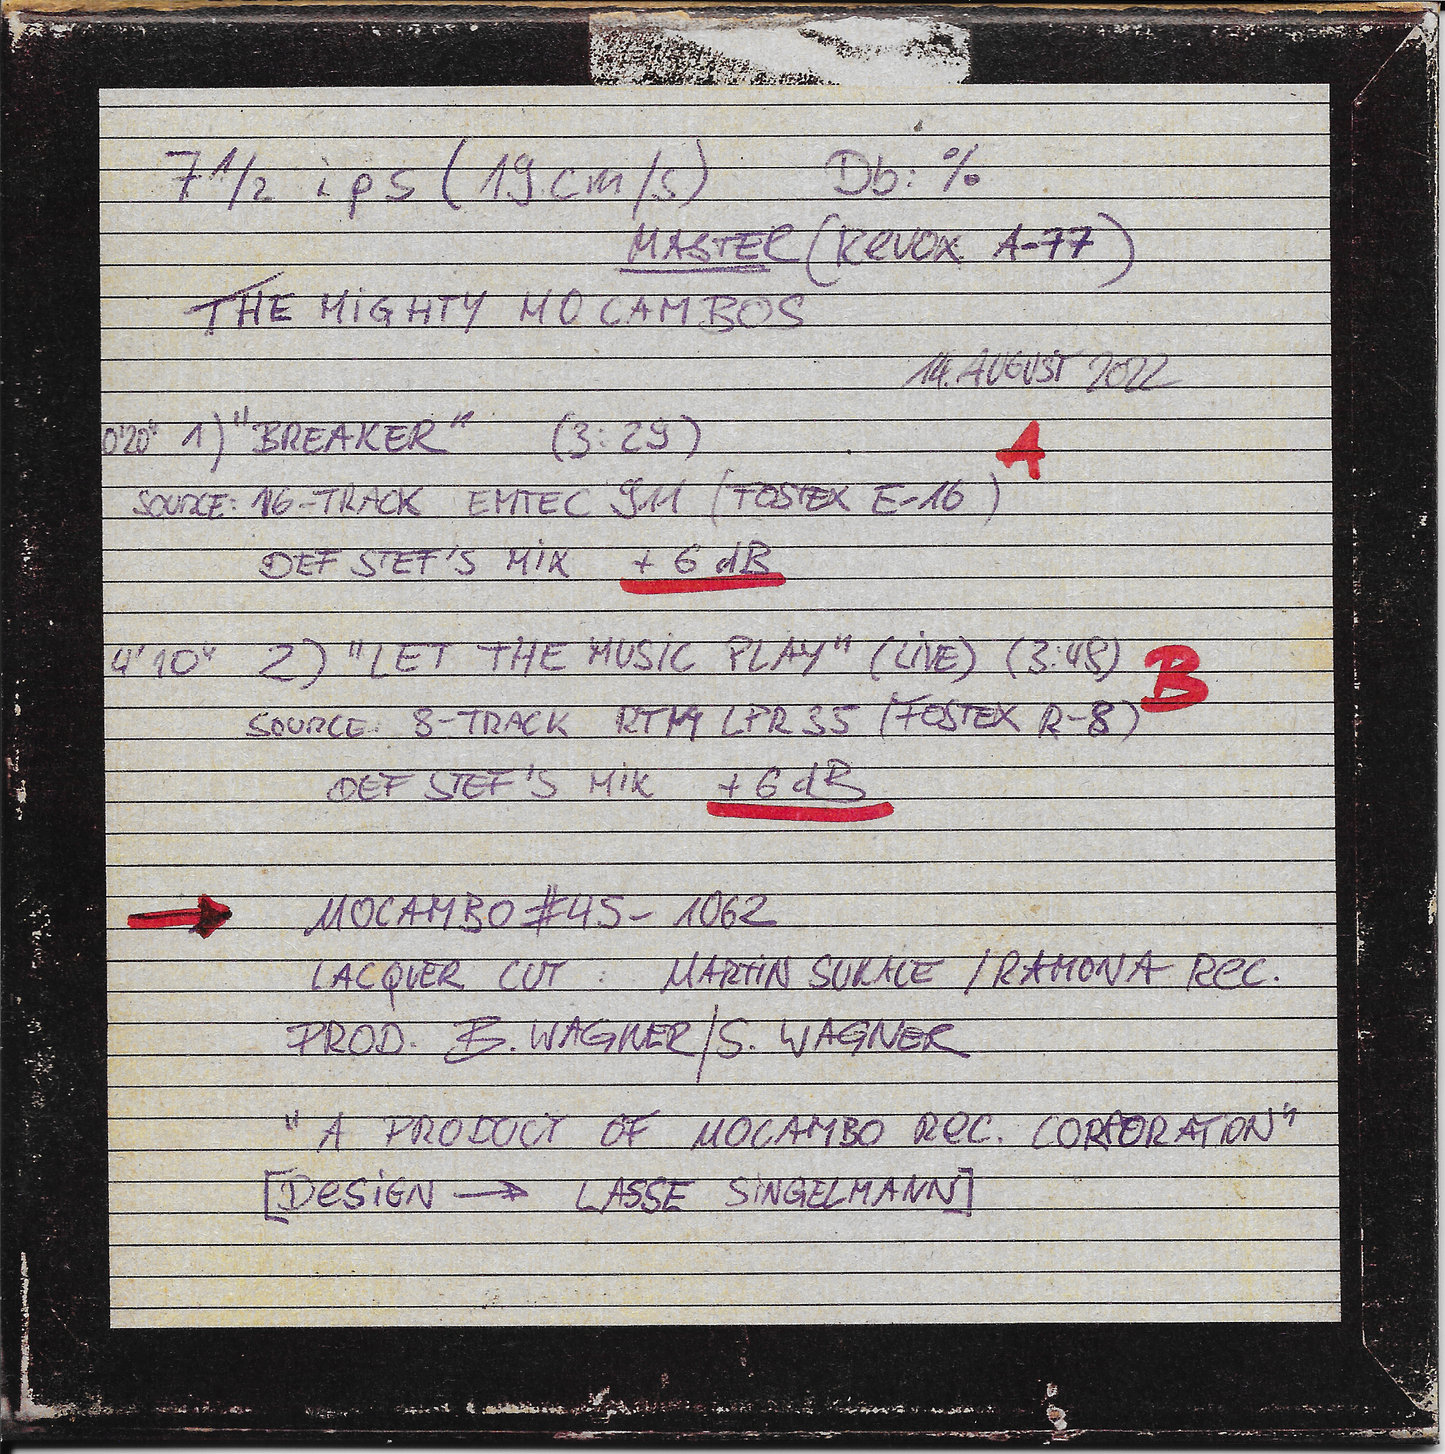 7 1/2 ips (19 cm/s) Db: %
MASTER (REVOX A-77)
THE MIGHTY MOCAMBOS
14. AUGUST 2022
0'20" 1) "BREAKER" (3:29) A
SOURCE: 16-TRACK EMTEC 911 (FOSTEX E-16)
DEF STEF'S MIX +6 dB
4'10" 2) "LET THE MUSIC PLAY" (LIVE) (3:48) B
SOURCE: 8-TRACK RTM LPR 35 (FOSTEX R-8)
DEF STEF'S MIX +6 dB
→ MOCAMBO #45-1062
LACQUER CUT: MARTIN SUKALE / RAMONA REC.
PROD. B. WAGNER/S. WAGNER
"A PRODUCT OF MOCAMBO REC. CORPORATION"
[DESIGN → LASSE SINGELMANN]